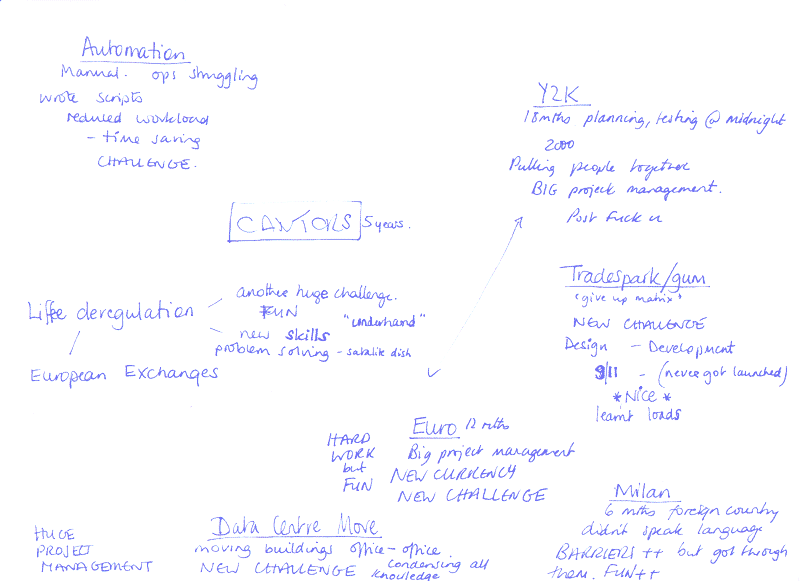 Automation
Manual. ops struggling
wrote scripts
reduced workload
- time saving
CHALLENGE.
Y2K
18mths planning, testing @ midnight
2000
Pulling people together
BIG project management.
Post Fuck
CANTORS 5 years.
Liffe deregulation
another huge challenge.
FUN "underhand"
new skills
problem solving - satalite dish
European Exchanges
Tradespark/gum
'give up matrix'
NEW CHALLENGE
Design - Development
9/11 - (never got launched)
*NICE*
learnt loads
Euro 12 mths
HARD
WORK
but
FUN
Big project management
NEW CURRENCY
NEW CHALLENGE
HUGE
PROJECT
MANAGEMENT
Data Centre Move
moving buildings office-office.
NEW CHALLENGE condensing all
knowledge
Milan
6 mths foreign country
didn't speak language
BARRIERS ++ but got through
them. FUN++